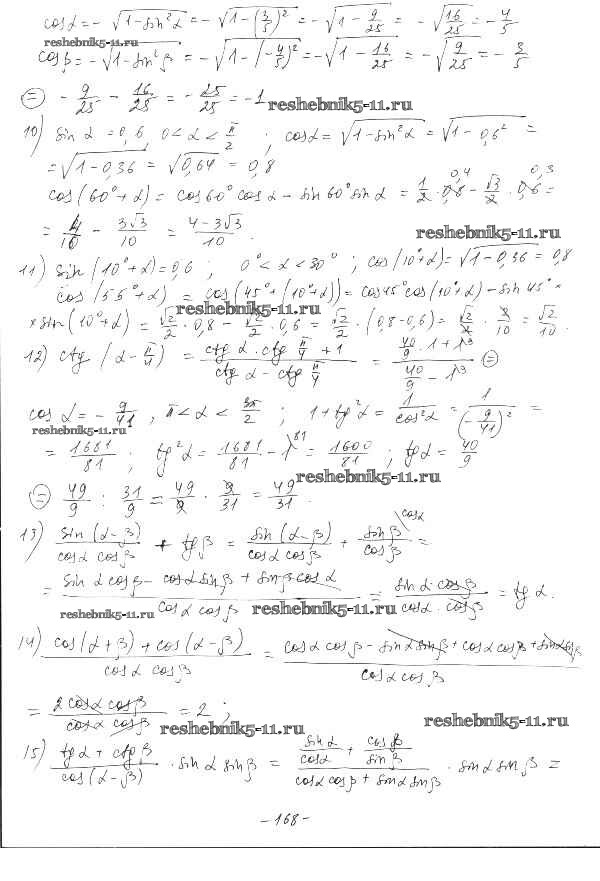 cosα = −√(1−sin²α) = −√(1−(3/5)²) = −√(1−9/25) = −√(16/25) = −4/5
reshebnik5-11.ru
cosβ = −√(1−sin²β) = −√(1−(−4/5)²) = −√(1−16/25) = −√(9/25) = −3/5
⊜ −9/25 − 16/25 = −25/25 = −1
reshebnik5-11.ru
10) sin α = 0,6 0 < α < π/2 ; cosα = √(1−sin²α) = √(1−0,6²) =
= √(1−0,36) = √0,64 = 0,8
cos(60°+α) = cos60° cosα − sin60° sinα = 1/2 · 0,8 0,4 − √3/2 · 0,6 0,3 =
= 4/10 − 3√3/10 = (4−3√3)/10 .
reshebnik5-11.ru
11) sin(10°+α) = 0,6 ; 0° < α < 30° ; cos(10°+α) = √(1−0,36) = 0,8
cos(55°+α) = cos(45°+(10°+α)) = cos45° cos(10°+α) − sin 45° ×
reshebnik5-11.ru
× sin(10°+α) = √2/2 · 0,8 − √2/2 · 0,6 = √2/2 · (0,8−0,6) = √2/2 · 2/10 = √2/10 .
12) ctg(α − π/4) = (ctg α · ctg π/4 + 1)/(ctg α − ctg π/4) = (40/9 · 1 + 1)/(40/9 − 1) ⊜
cosα = −9/41 , π < α < 3π/2 ; 1 + tg²α = 1/cos²α = 1/(−9/41)² =
reshebnik5-11.ru
= 1681/81 ; tg²α = 1681/81 − 1 81 = 1600/81 ; tgα = 40/9
reshebnik5-11.ru
⊜ 49/9 : 31/9 = 49/9 · 9/31 = 49/31 .
13) sin(α−β)/(cosα cosβ) + tgβ = sin(α−β)/(cosα cosβ) + sinβ/cosβ cosα =
= (sinα cosβ − cosα sinβ + sinβ cosα)/(cosα cosβ) = (sinα · cosβ)/(cosα · cosβ) = tg α.
reshebnik5-11.ru reshebnik5-11.ru
14) (cos(α+β) + cos(α−β))/(cosα cosβ) = (cosα cosβ − sinα sinβ + cosα cosβ + sinα sinβ)/(cosα cosβ)
= (2 cosα cosβ)/(cosα cosβ) = 2 ;
reshebnik5-11.ru reshebnik5-11.ru
15) (tgα + ctgβ)/cos(α−β) · sinα sinβ = (sinα/cosα + cosβ/sinβ)/(cosα cosβ + sinα sinβ) · sinα sinβ =
−168−